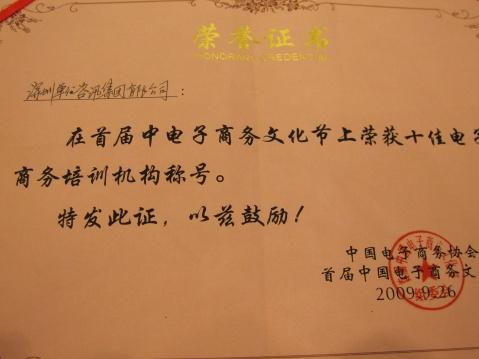 荣誉证书
HONORARY CREDENTIAL
深圳单仁咨讯集团有限公司：
在首届中电子商务文化节上荣获十佳电子
商务培训机构称号。
特发此证，以兹鼓励！
中国电子商务协会
首届中国电子商务文
2009.9.26